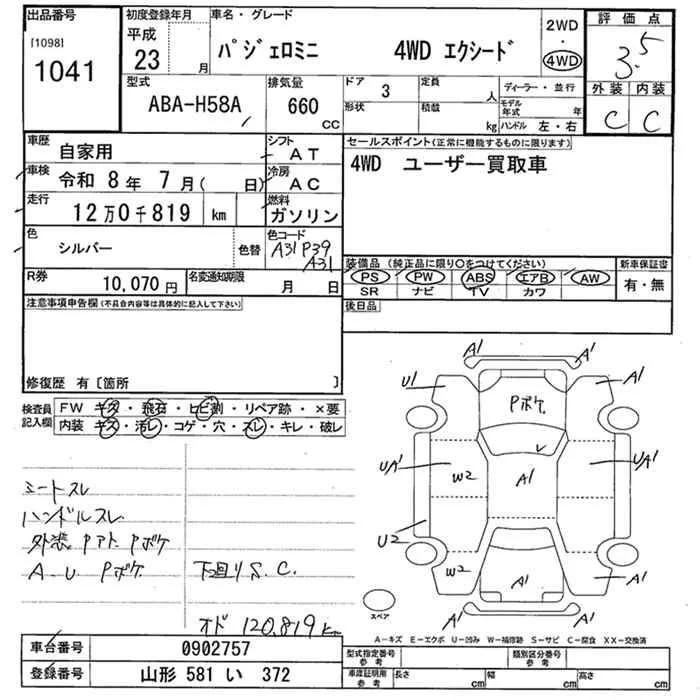 出品番号
[1098]
1041
初度登録年月
平成
23
月
車名・グレード
パジェロミニ 4WD エクシード
2WD
・
4WD
評価点
3.5
外装 内装
C C
型式
ABA-H58A
排気量
660
CC
ドア 3
形状
定員 人
積載 kg
ディーラー・並行
モデル年式 年
ハンドル 左・右
車歴
自家用
シフト
AT
車検
令和 8年 7月( 日)
冷房
AC
走行
12万0千819 km
燃料
ガソリン
色
シルバー
色替
色コード
A31P39
A31
R券
10,070円
名変通知期限
月 日
セールスポイント(正常に機能するものに限ります)
4WD ユーザー買取車
装備品(純正品に限り○をつけてください)
PS PW ABS エアB AW
SR ナビ TV カワ
新車保証書
有・無
後日品
注意事項申告欄(不具合内容等は具体的に記入して下さい)
修復歴 有〔箇所 〕
検査員
記入欄
FW キズ・飛石・ヒビ割・リペア跡・×要
内装 キズ・汚レ・コゲ・穴・スレ・キレ・破レ
シートスレ
ハンドルスレ
外装 Pアト Pボケ
A.U Pボケ
下回りS.C.
オド 120,819km
A1 A1
U1 A1
Pボケ
UA1 W2 A1 UA1
U2
W2 A1 A1
A1 A1
スペア
A−キズ E−エクボ U−凹み W−補修跡 S−サビ C−腐食 XX−交換済
車台番号
0902757
登録番号
山形 581 い 372
型式指定番号
参考
類別区分番号
参考
車庫証明用
参考
長さ cm
幅 cm
高さ cm